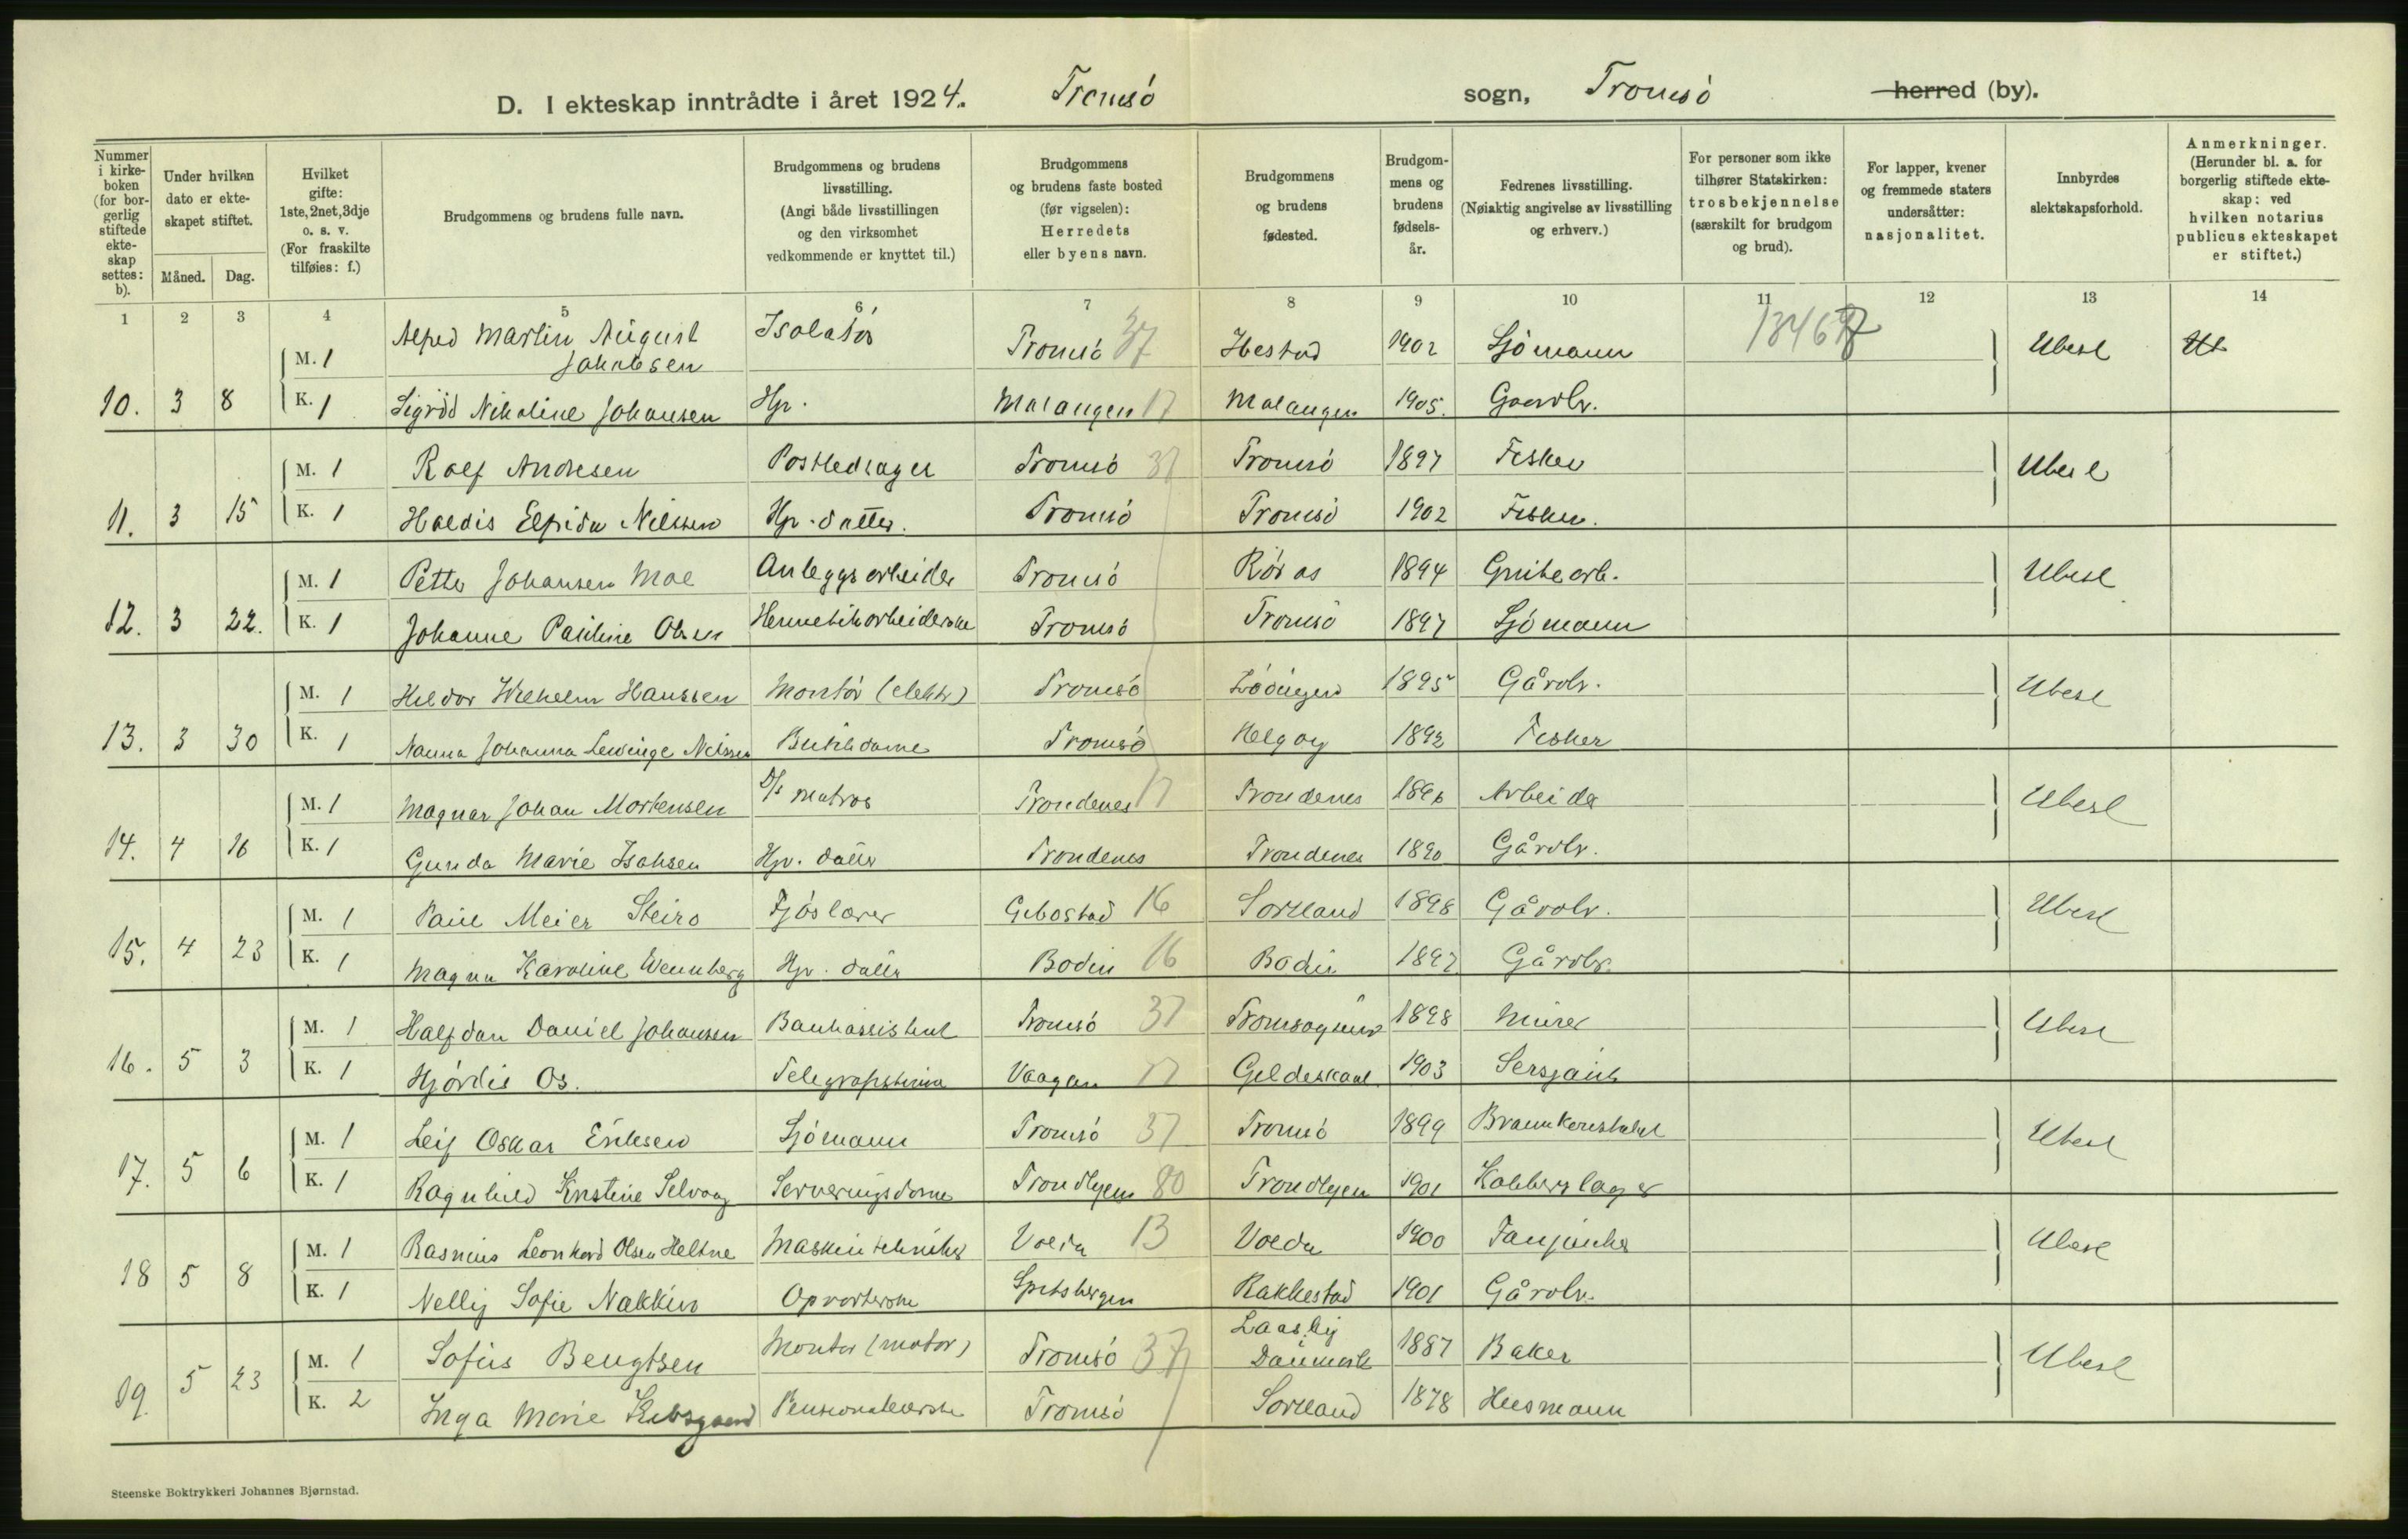 D. I ekteskap inntrådte i året 1924. Tromsø sogn, Tromsø herred (by).
Nummer i kirkeboken (for borgerlig stiftede ekteskap settes: b).
Under hvilken dato er ekteskapet stiftet.
Måned. Dag.
Hvilket gifte: 1ste, 2net, 3dje o. s. v. (For fraskilte tilføies: f.)
Brudgommens og brudens fulle navn.
Brudgommens og brudens livsstilling. (Angi både livsstillingen og den virksomhet vedkommende er knyttet til.)
Brudgommens og brudens faste bosted (før vigselen): Herredets eller byens navn.
Brudgommens og brudens fødested.
Brudgommens og brudens fødselsår.
Fedrenes livsstilling. (Nøiaktig angivelse av livsstilling og erhverv.)
For personer som ikke tilhører Statskirken: trosbekjennelse (særskilt for brudgom og brud).
For lapper, kvener og fremmede staters undersåtter: nasjonalitet.
Innbyrdes slektskapsforhold.
Anmerkninger. (Herunder bl. a. for borgerlig stiftede ekteskap: ved hvilken notarius publicus ekteskapet er stiftet.)
1 2 3 4 5 6 7 8 9 10 11 12 13 14
M. 1 Alfred Martin August Jakobsen Isolatør Tromsø 37 Ibestad 1902 Sjømann Ubesl
10. 3 8 K. 1 Sigrid Nikoline Johansen Hp. Malangen 17 Malangen 1905. Gaardbr.
M. 1 Rolf Andresen Postbedrager Tromsø 37 Tromsø 1897 Fisker Ubesl
11. 3 15 K. 1 Haldis Elfrida Nilssen Hp. datter. Tromsø Tromsø 1902 Fisker.
M. 1 Petter Johansen Moe Anleggsarbeider Tromsø Røros 1894 Grubearb. Ubesl
12. 3 22. K. 1 Johanne Pauline Olsen Hermetikarbeiderske Tromsø Tromsø 1897 Sjømann
M. 1 Hildor Wilhelm Hanssen Montør (elektr) Tromsø Lødingen 1895 Gårdbr. Ubesl
13. 3 30 K. 1 Nanna Johanna Nilssen Butikdame Tromsø Helgøy 1892 Fisker
M. 1 Magnar Johan Mortensen D/s matros Trondenes 17 Trondenes 1896 Arbeider Ubesl
14. 4 16 K. 1 Gunda Marie Isaksen Hp. datter Trondenes Trondenes 1890 Gårdbr.
M. 1 Paul Meier Steiro Fjøslærer Gibostad 16 Sortland 1898 Gårdbr. Ubesl
15. 4 23 K. 1 Magna Karoline Wennberg Hp. datter Bodin 16 Bodin 1897 Gårdbr.
M. 1 Halfdan Daniel Johansen Bankassistent Tromsø 37 Tromsøysund 1898 Murer Ubesl
16. 5 3 K. 1 Hjørdis Os. Telegrafistinne Vaagan 17 Gildeskaal 1903 Sersjant
M. 1 Leif Oskar Eriksen Sjømann Tromsø 37 Tromsø 1899 Brannkonstabel Ubesl
17. 5 6 K. 1 Ragnhild Kristine Selvaag Serveringsdame Trondhjem 80 Trondhjem 1901 Kobberslager
M. 1 Rasmus Leonhard Olsen Heltne Maskintekniker Volda 13 Volda 1900 Ubesl
18 5 8 K. 1 Nellij Sofie Nakkim Opvarterske Spitsbergen Rakkestad 1901 Gårdbr.
M. 1 Sofus Bengtsen Montør (motor) Tromsø 37 Laasby Danmark 1887 Baker Ubesl
19. 5 23 K. 2 Inga Marie Pensionateierske Tromsø Sortland 1878 Husmann
Steenske Boktrykkeri Johannes Bjørnstad.